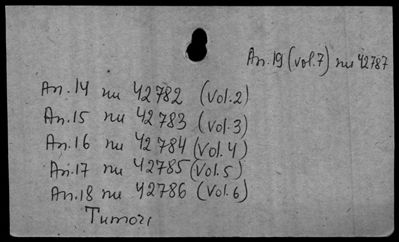 An.19 (vol.7) nu 42787
An.14 nu 42782 (vol.2)
An.15 nu 42783 (vol.3)
An.16 nu 42784 (vol.4)
An.17 nu 42785 (vol.5)
An.18 nu 42786 (vol.6)
Tumori